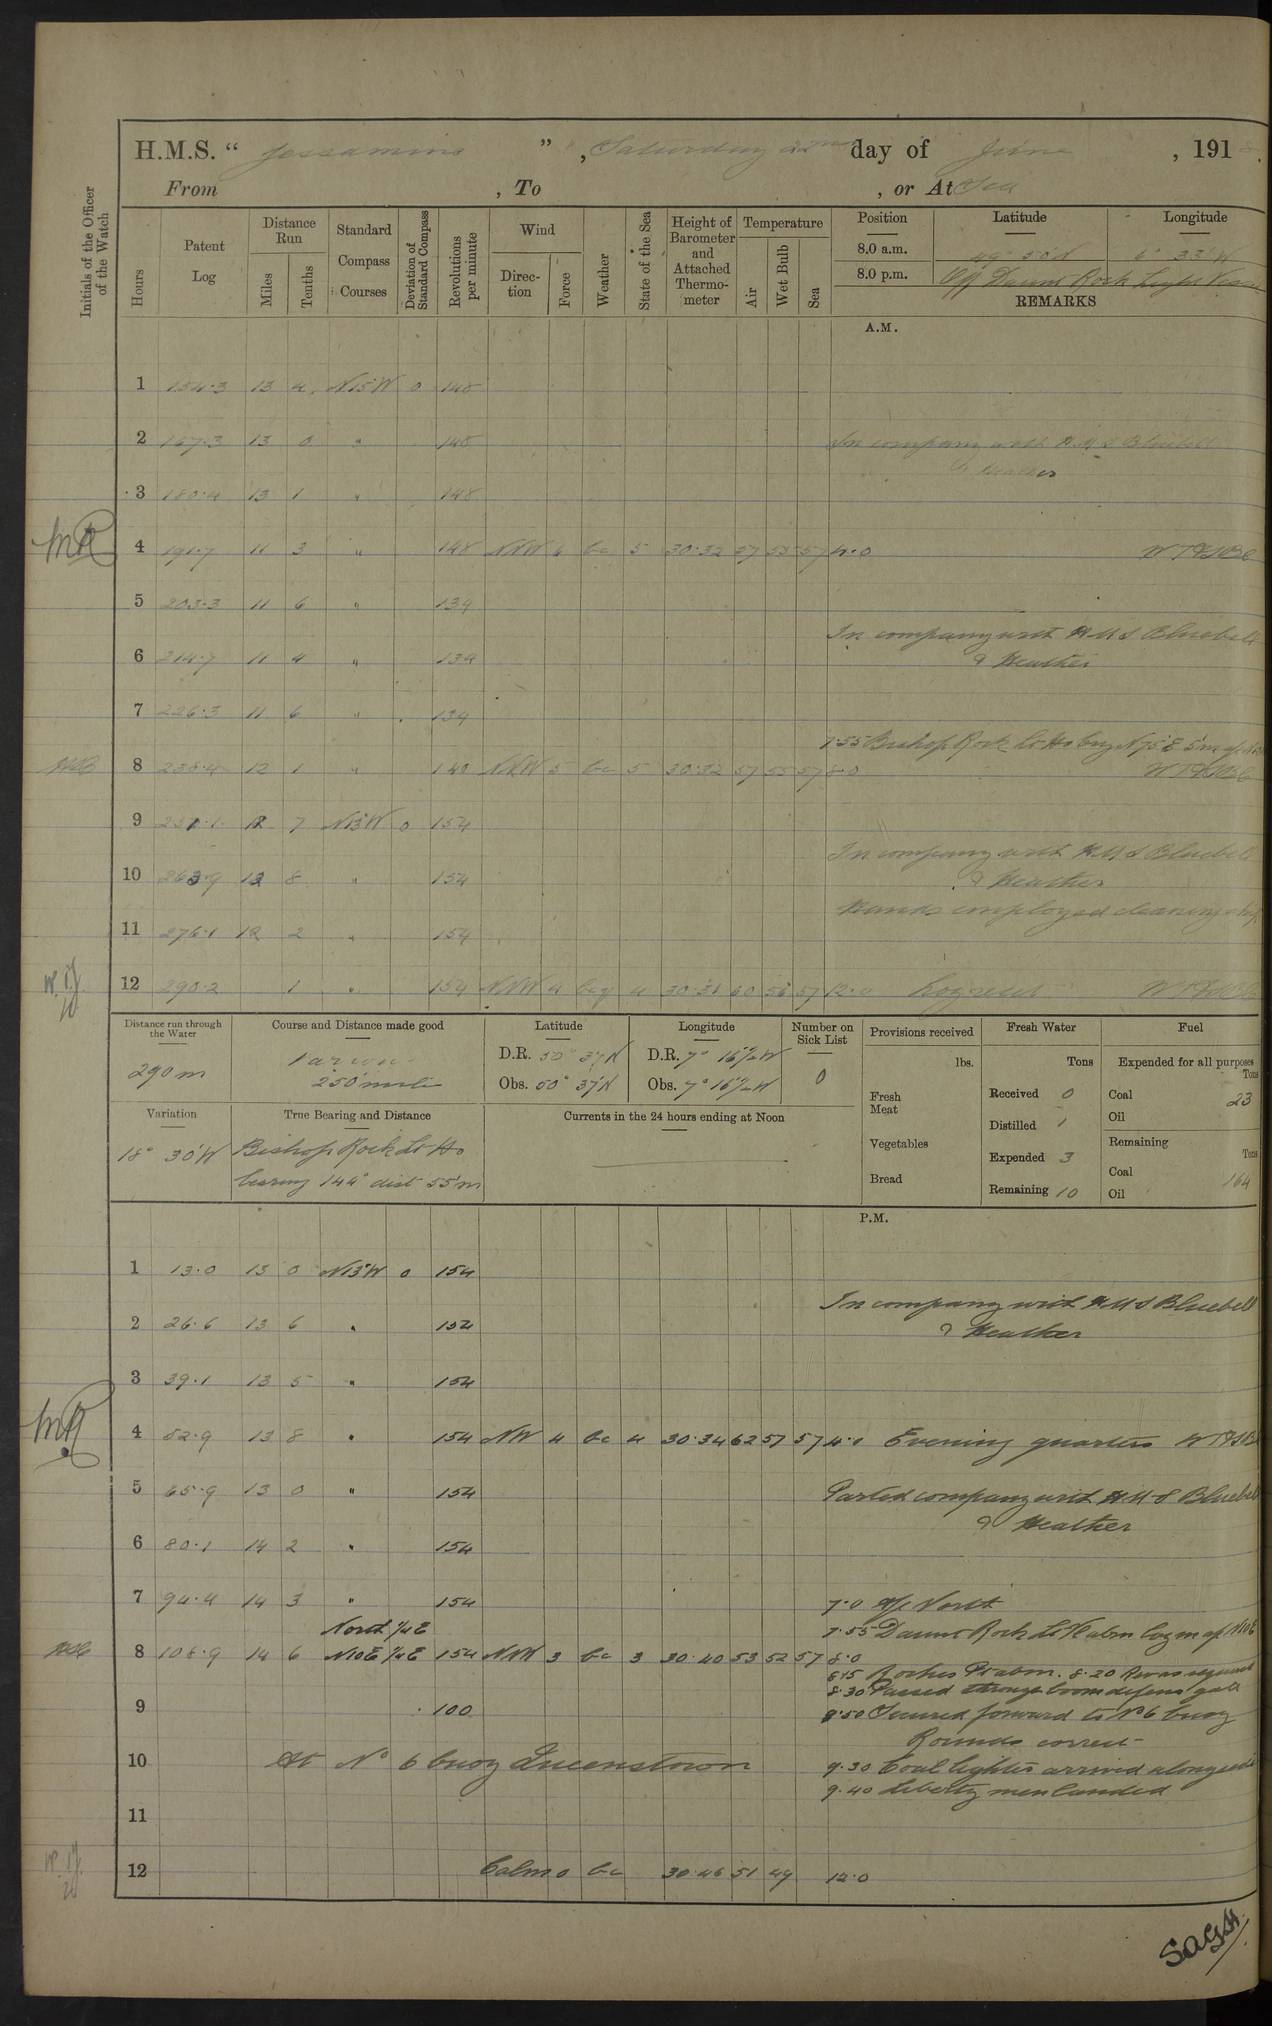 H.M.S. “ Jessamine ” , Saturday 22nd day of June , 1918.
From , To , or At Sea
Initials of the Officer of the Watch
Hours
Patent Log
Distance Run
Miles
Tenths
Standard Compass Courses
Deviation of Standard Compass
Revolutions per minute
Wind
Direction
Force
Weather
State of the Sea
Height of Barometer and Attached Thermometer
Temperature
Air
Wet Bulb
Sea
Position Latitude Longitude
8.0 a.m. 49° 50'N 6° 33'W
8.0 p.m. Off Daunt Rock Light Vessel
REMARKS
A.M.
1 154.3 13 4 N15W 0 148
2 167.3 13 0 " 148 In company with H.M.S Bluebell
& Heather
3 180.4 13 1 " 148
4 191.7 11 3 " 148 NNW 6 bc 5 30.32 57 55 57 4.0
5 203.3 11 6 " 139
In company with H.M.S Bluebell
6 214.7 11 4 " 139 & Heather
7 226.3 11 6 " 139
7.55 Bishop Rock Lt Ho brg N75°E 5'
8 238.4 12 1 " 140 NNW 5 bc 5 30.32 57 55 57 8.0
9 251.1 12 7 N13W 0 154
In company with H.M.S Bluebell
10 263.9 12 8 " 154 & Heather
Hands employed cleaning ship
11 276.1 12 2 " 154
12 290.2 1 " 154 NNW 4 bcq 4 30.31 60 56 57 12.0 Log reset
Distance run through the Water
290 m
Course and Distance made good
Various
250 miles
Latitude
D.R. 50° 37'N
Obs. 50° 37'N
Longitude
D.R. 7° 16½'W
Obs. 7° 16½'W
Number on Sick List
0
Provisions received
lbs.
Fresh Meat
Vegetables
Bread
Fresh Water
Tons
Received 0
Distilled 1
Expended 3
Remaining 10
Fuel
Expended for all purposes
Tons
Coal 23
Oil
Remaining
Tons
Coal 164
Oil
Variation
18° 30'W
True Bearing and Distance
Bishop Rock Lt Ho
bearing 144° dist 55'm
Currents in the 24 hours ending at Noon
P.M.
1 13.0 13 0 N13W 0 154
In company with H.M.S Bluebell
2 26.6 13 6 " 154 & Heather
3 39.1 13 5 " 154
4 52.9 13 8 " 154 NW 4 bc 4 30.34 62 57 57 4.0 Evening quarters
5 65.9 13 0 " 154 Parted company with H.M.S Bluebell
& Heather
6 80.1 14 2 " 154
7 94.4 14 3 " 154 7.0 A/c North
North ¼E 7.55 Daunt Rock Lt V abm
8 108.9 14 6 N10E ¼E 154 NNW 3 bc 3 30.40 53 52 57 8.0
8.15 Roches Pt abm. 8.20 Revs as required
8.30 Passed through boom defence gate
9 100 8.50 Secured forward to No 6 buoy
Rounds correct
10 At No 6 buoy Queenstown 9.30 Coal lighter arrived alongside
9.40 Liberty men landed
11
12 Calm 0 bc 30.46 51 49 12.0